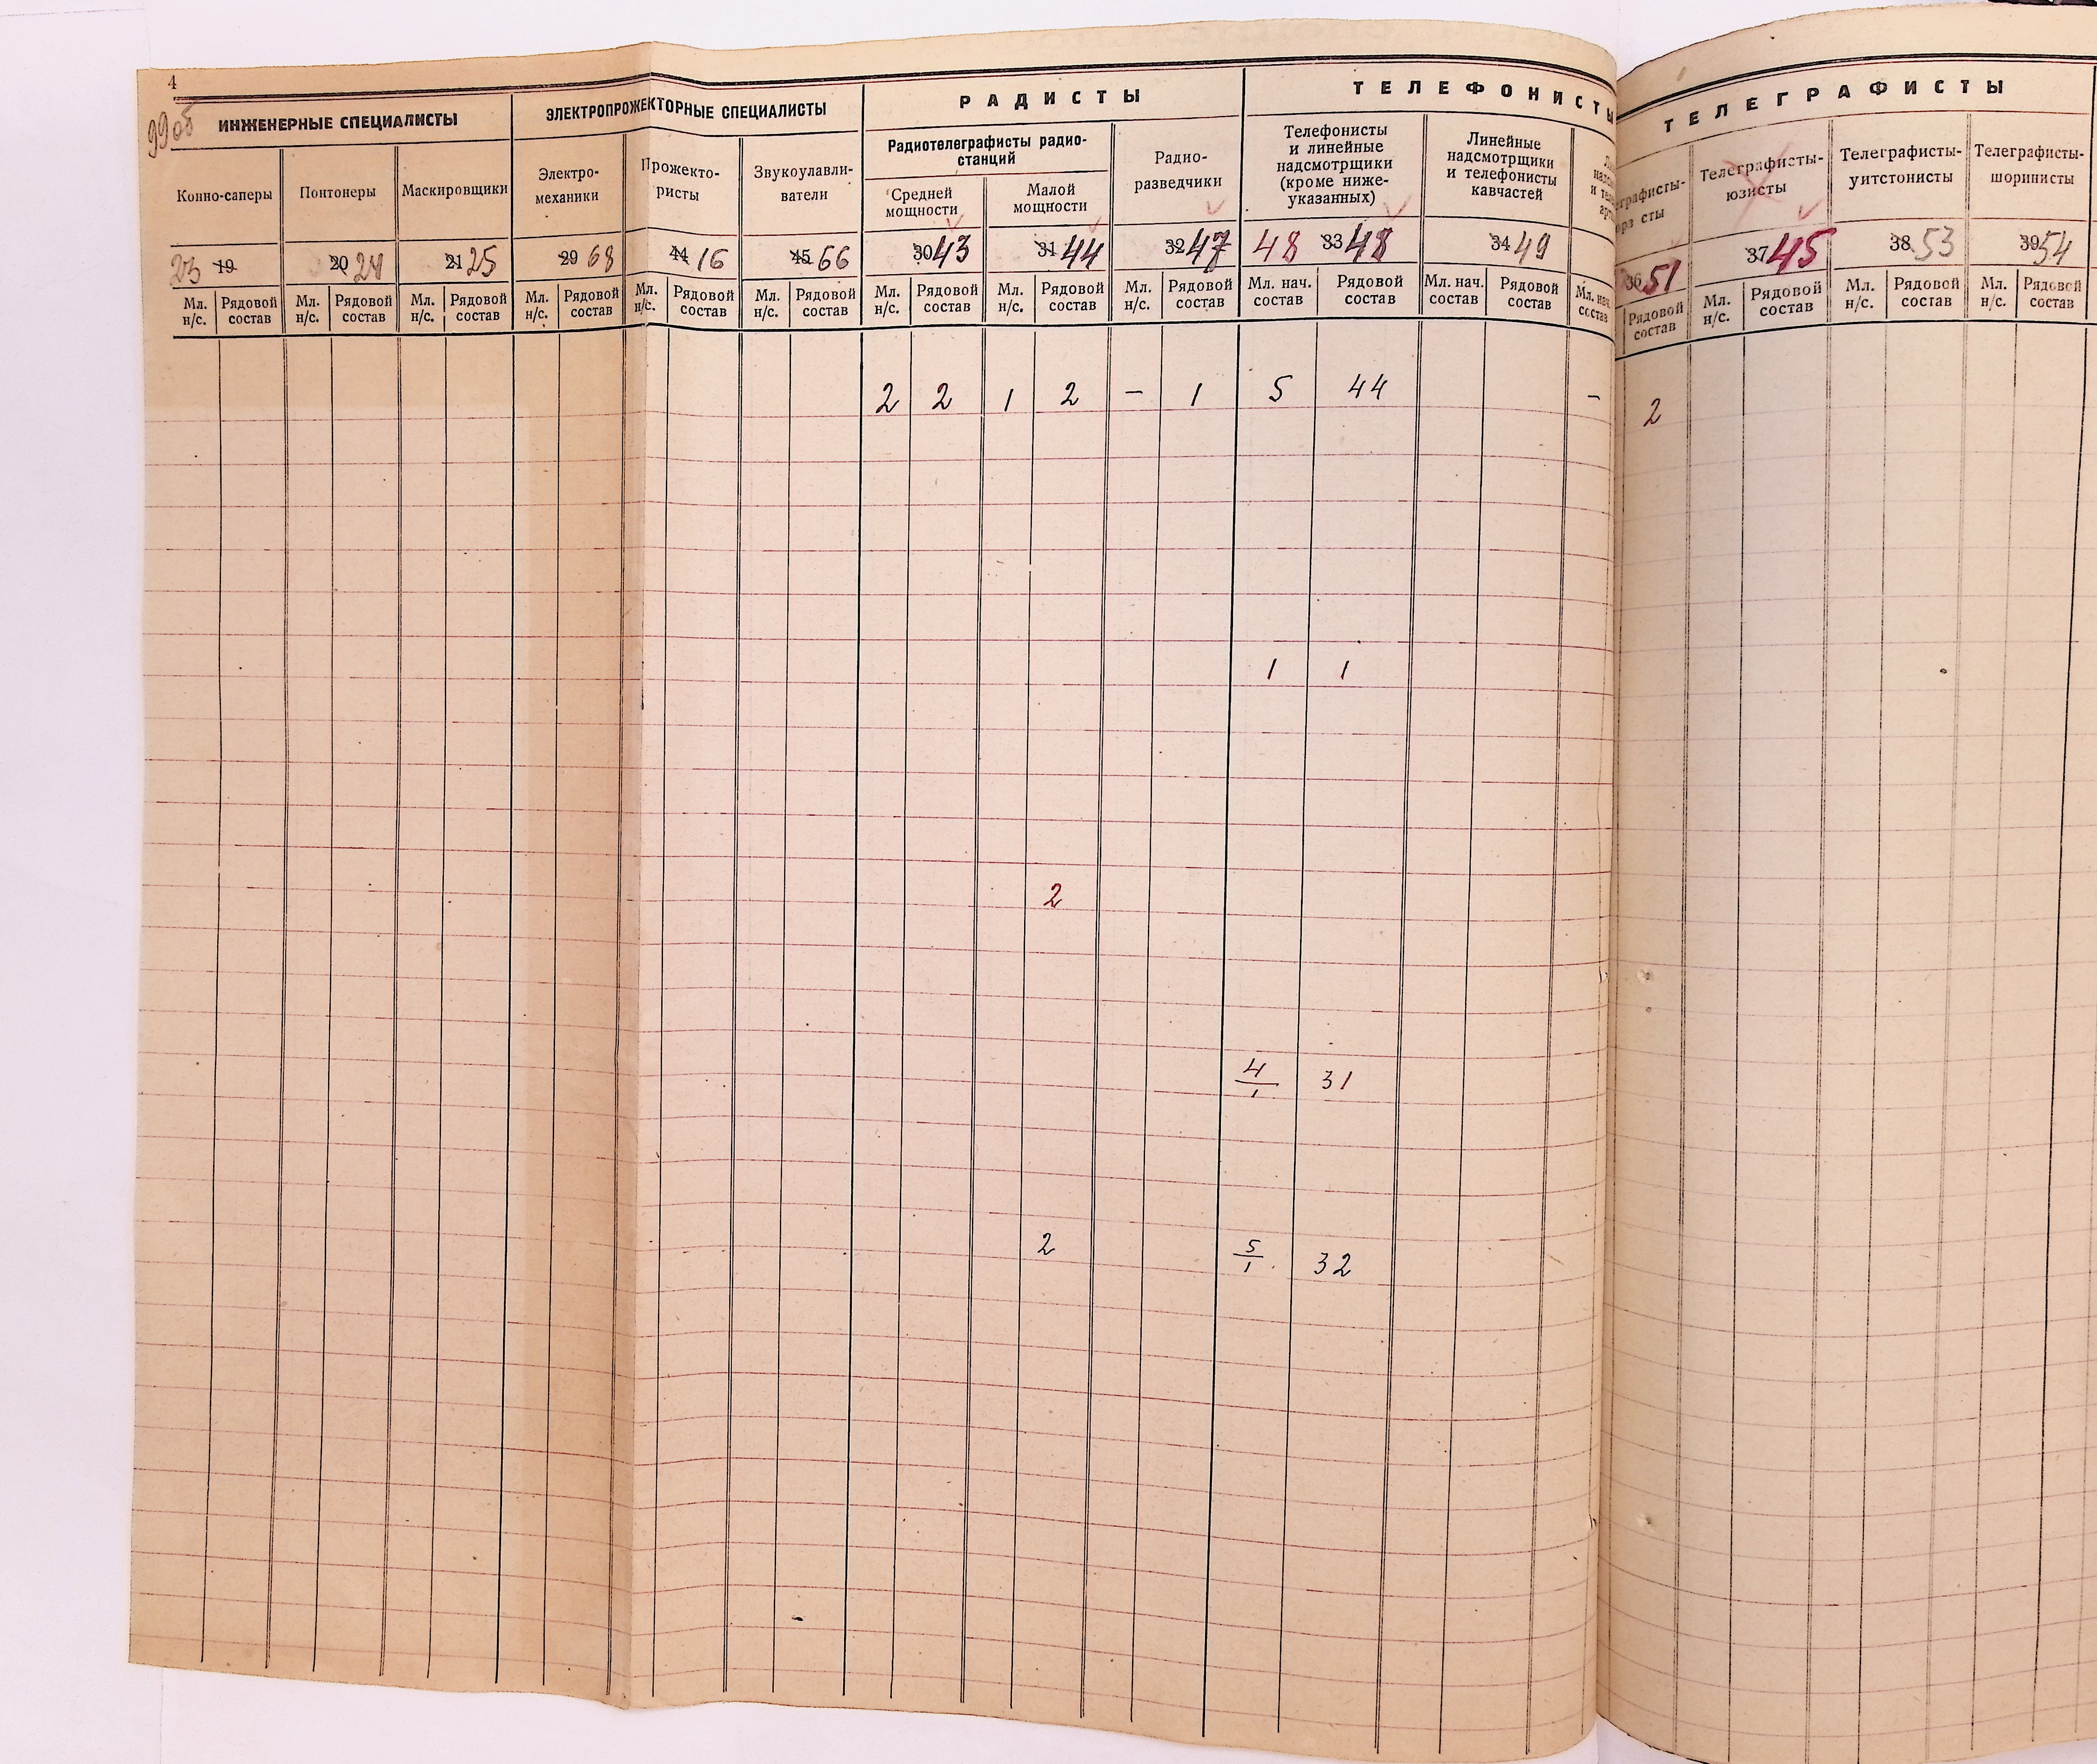 4
99об
ИНЖЕНЕРНЫЕ СПЕЦИАЛИСТЫ
ЭЛЕКТРОПРОЖЕКТОРНЫЕ СПЕЦИАЛИСТЫ
РАДИСТЫ
ТЕЛЕФОНИСТЫ
ТЕЛЕГРАФИСТЫ
Конно-саперы
Понтонеры
Маскировщики
Электро-
механики
Прожекто-
ристы
Звукоулавли-
ватели
Радиотелеграфисты радио-
станций
Средней
мощности
Малой
мощности
Радио-
разведчики
Телефонисты
и линейные
надсмотрщики
(кроме ниже-
указанных)
Линейные
надсмотрщики
и телефонисты
кавчастей
Телеграфисты-
юзисты
Телеграфисты-
уитстонисты
Телеграфисты-
шоринисты
23 19
20 24
21 25
29 68
44 16
45 66
30 43
31 44
32 47
48 33 48
34 49
36 51
37 45
38 53
39 54
Мл. н/с. Рядовой состав
Мл. н/с. Рядовой состав
Мл. н/с. Рядовой состав
Мл. н/с. Рядовой состав
Мл. н/с. Рядовой состав
Мл. н/с. Рядовой состав
Мл. н/с. Рядовой состав
Мл. н/с. Рядовой состав
Мл. н/с. Рядовой состав
Мл. нач. состав Рядовой состав
Мл. нач. состав Рядовой состав
Мл. нач. состав
Рядовой состав
Мл. н/с. Рядовой состав
Мл. н/с. Рядовой состав
Мл. н/с. Рядовой состав
2 2 1 2 – 1 5 44 – 2
1 1
2
4/1 31
2 5/1 32